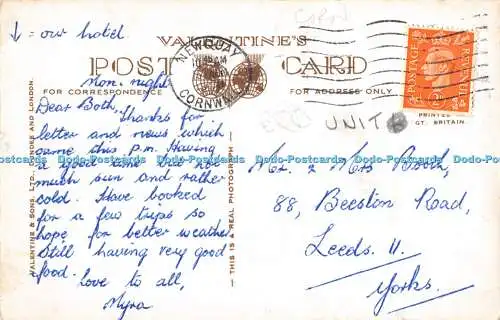 ↓ = our hotel
VALENTINE'S
POST CARD
FOR CORRESPONDENCE
FOR ADDRESS ONLY
NEWQUAY
CORNWALL
POSTAGE
REVENUE
PRINTED
GT. BRITAIN
UNIT
VALENTINE & SONS, LTD., DUNDEE AND LONDON.
THIS IS A REAL PHOTOGRAPH
Mon. night
Dear Both,
Thanks for
letter and news which
came this p.m. Having
a good time but not
much sun and rather
cold. Have booked
for a few trips so
hope for better weather.
Still having very good
food.
love to all,
Myra
Mr. & Mrs Booth,
88, Beeston Road,
Leeds. 11.
Yorks.
Dodo-Postcards Dodo-Postcards Dodo-Postcards Dodo-Postcards